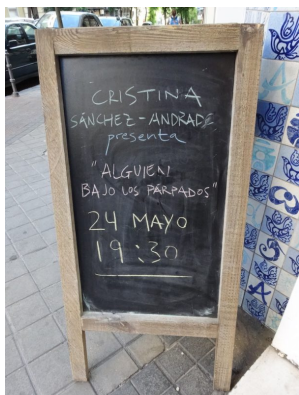 CRISTINA
SÁNCHEZ-ANDRADE
presenta
"ALGUIEN
BAJO LOS PÁRPADOS"
24 MAYO
19:30